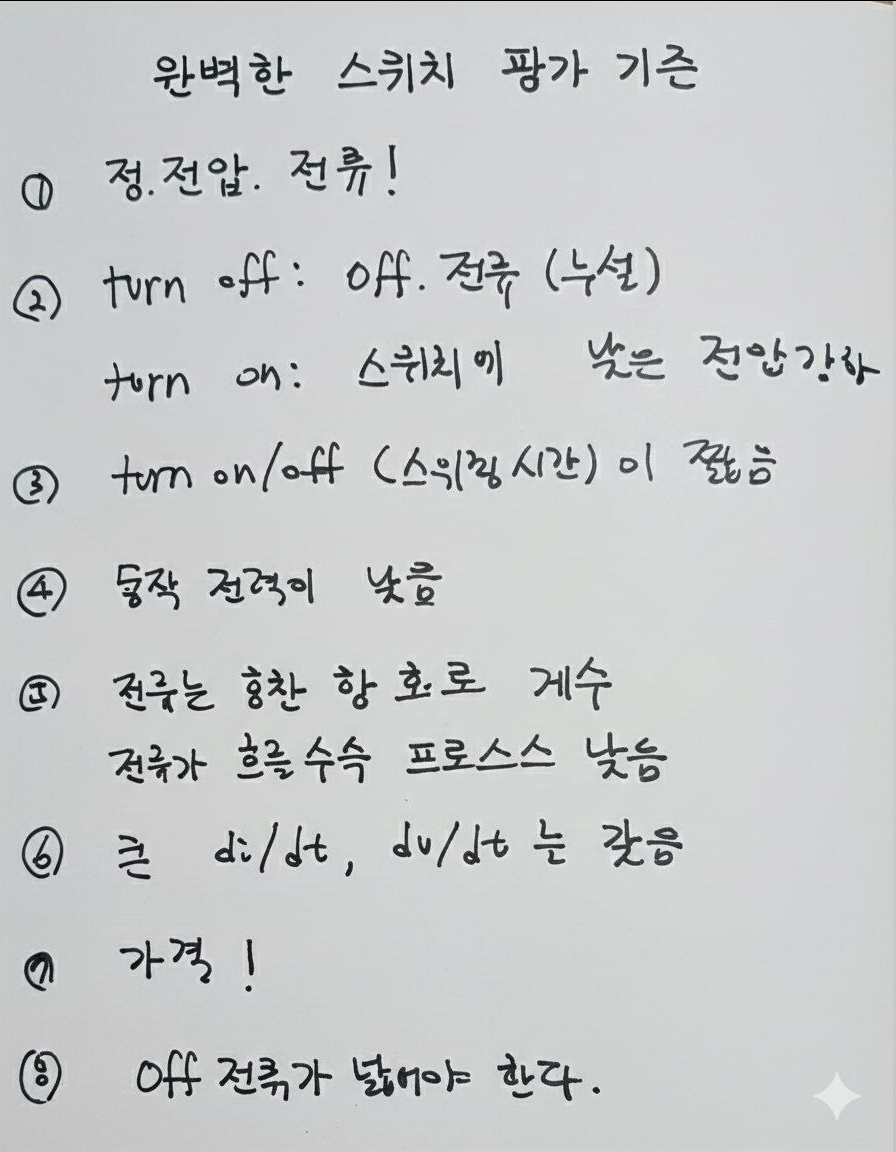 완벽한 스위치 팡가 기준
① 정.전압. 전류!
② turn off: off. 전류 (누설)
turn on: 스위치에 낮은 전압강하
③ turn on/off (스위칭 시간) 이 짧음
④ 동작 전력이 낮음
⑤ 전류는 항 로 계수
전류가 흐를수속 프로스스 낮음
⑥ 큰 di/dt, dv/dt 는 갖음
⑦ 가격!
⑧ Off 전류가 한다.